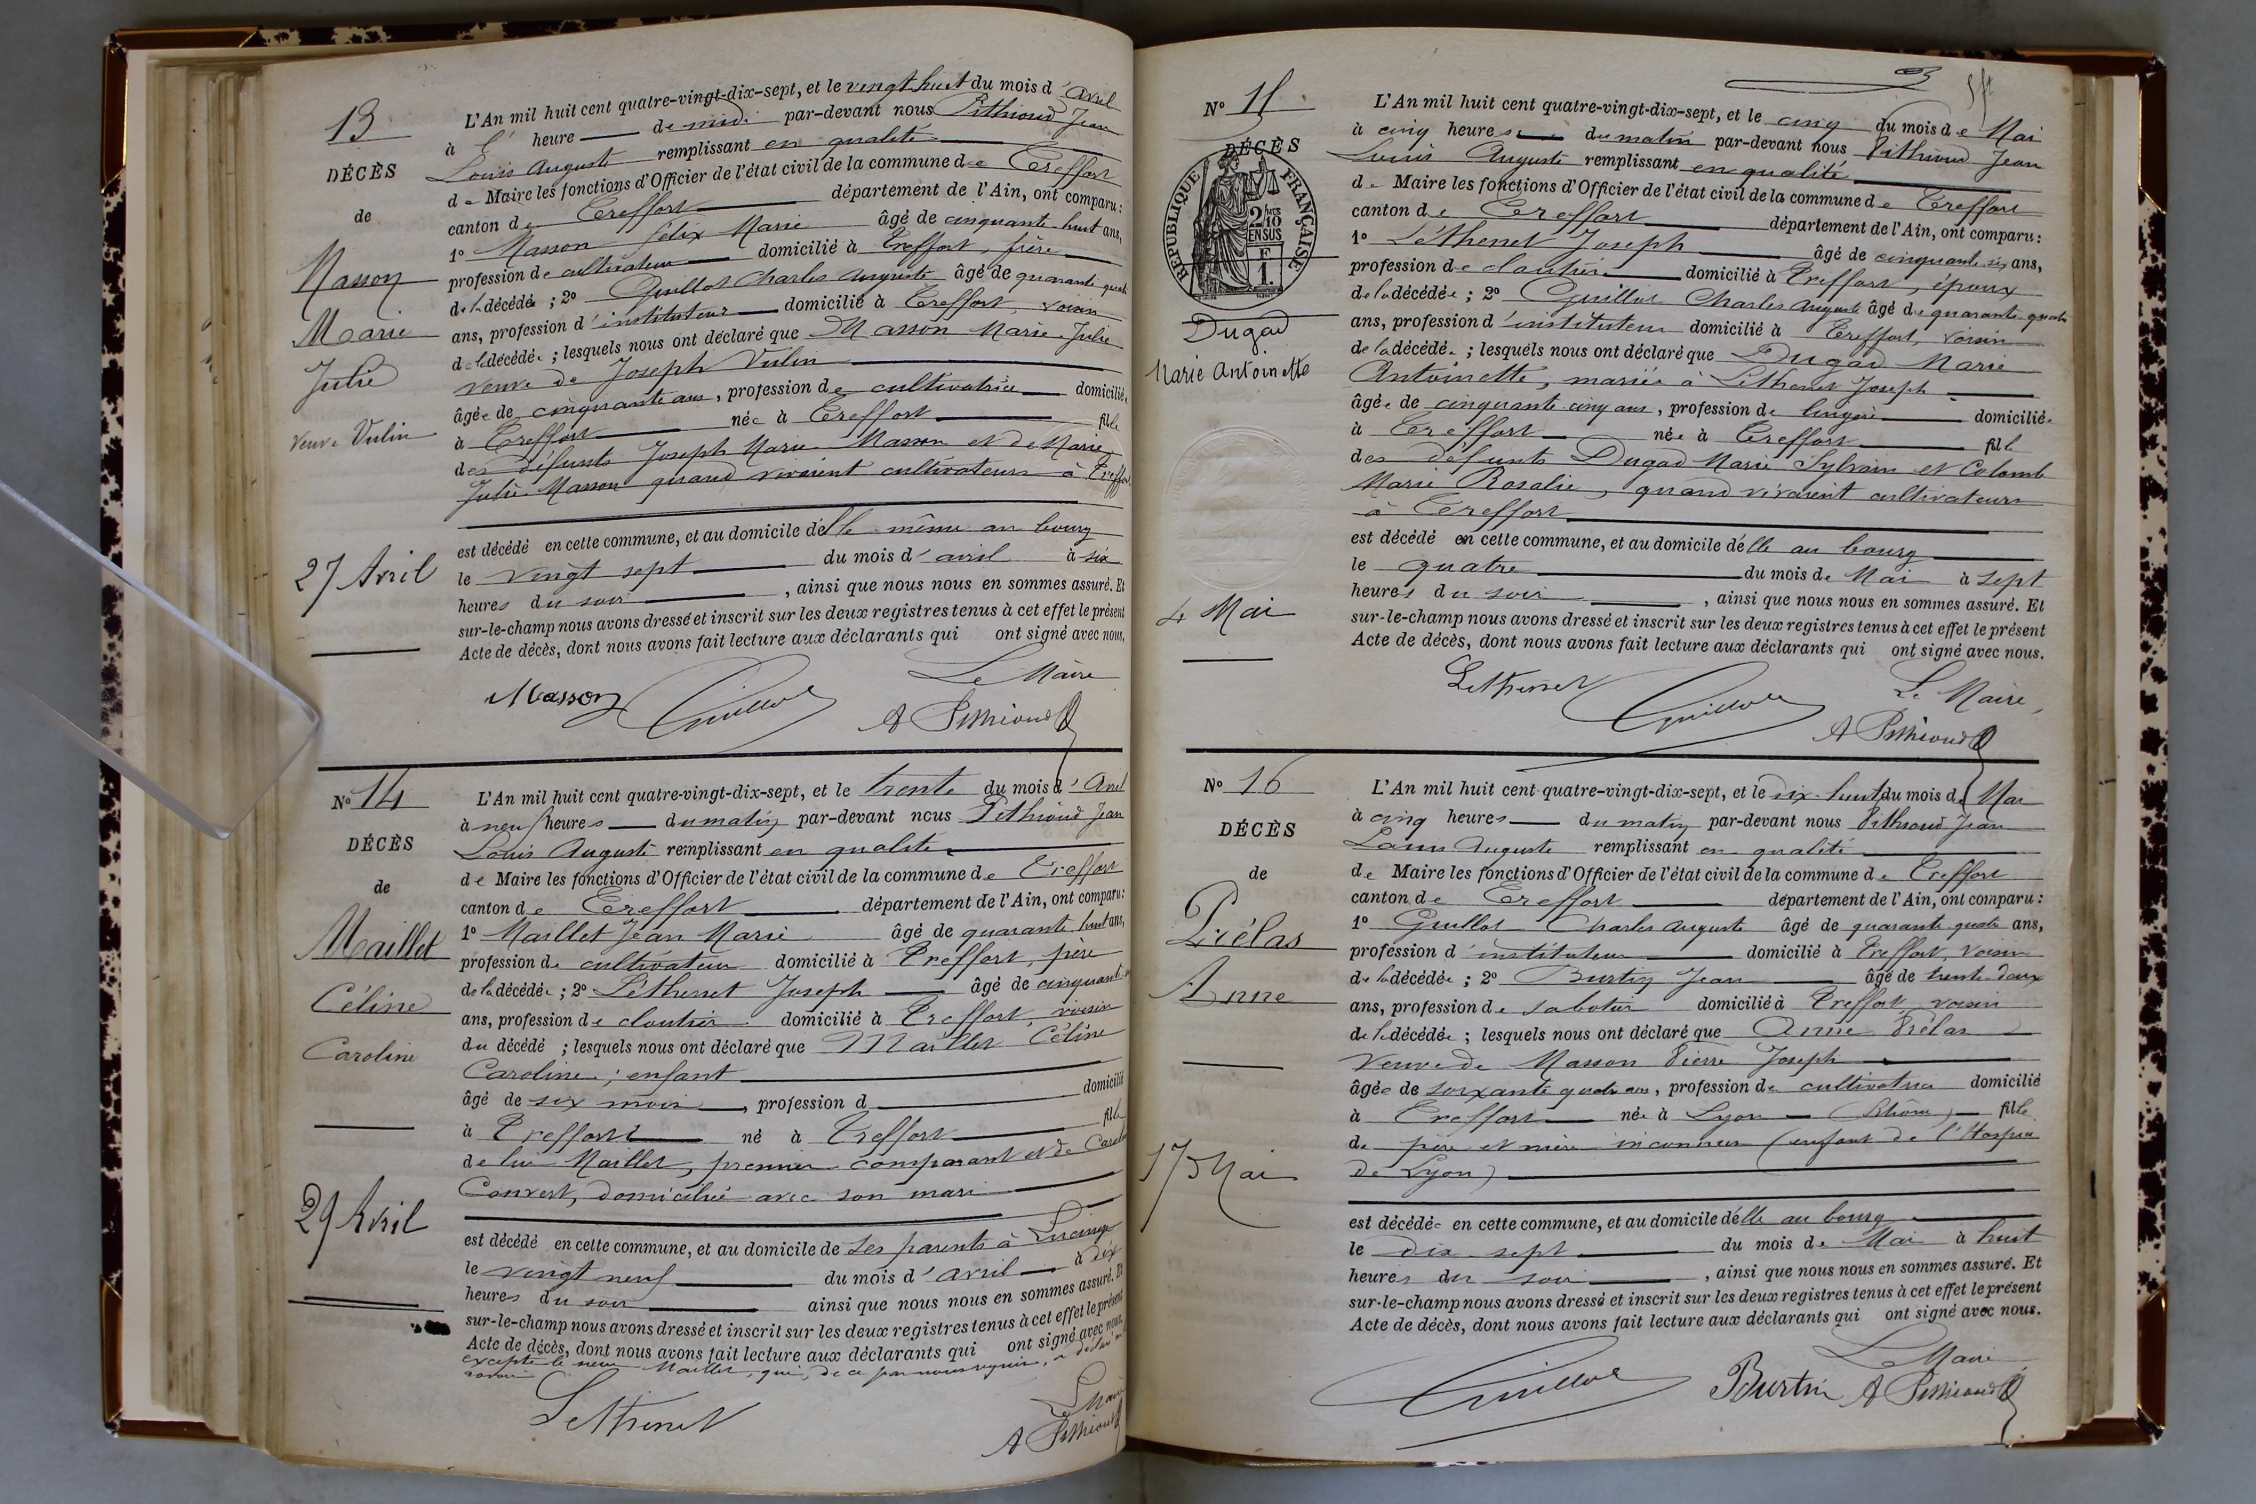 13
DÉCÈS
de
Masson
Marie
Julie
Veuve Vulin
27 Avril
L'An mil huit cent quatre-vingt-dix-sept, et le vingt huit du mois d'Avril
à heure de midi par-devant nous Pithioud Jean
Louis Auguste remplissant en qualité
de Maire les fonctions d'Officier de l'état civil de la commune de Treffort
canton de Treffort département de l'Ain, ont comparu :
1° Masson félix Marie âgé de cinquante-huit ans,
profession de cultivateur domicilié à Treffort, frère
de la décédée ; 2° Guillot Charles Auguste âgé de quarante quatre
ans, profession d'instituteur domicilié à Treffort, voisin
de la décédée ; lesquels nous ont déclaré que Masson Marie Julie
veuve de Joseph Vulin
âgée de cinquante ans, profession de cultivatrice domiciliée
à Treffort née à Treffort fille
des défunts Joseph Marie Masson et de Marie
Julie Masson quand vivaient cultivateurs à Treffort
est décédé en cette commune, et au domicile d'elle même au bourg
le vingt sept du mois d'avril à six
heures du soir, ainsi que nous nous en sommes assuré. Et
sur-le-champ nous avons dressé et inscrit sur les deux registres tenus à cet effet le présent
Acte de décès, dont nous avons fait lecture aux déclarants qui ont signé avec nous,
Le Maire
Masson Guillot A Pithioud
N° 14
DÉCÈS
de
Maillet
Céline
Caroline
29 Avril
L'An mil huit cent quatre-vingt-dix-sept, et le trente du mois d'Avril
à neuf heures du matin par-devant nous Pithioud Jean
Louis Auguste remplissant en qualité
de Maire les fonctions d'Officier de l'état civil de la commune de Treffort
canton de Treffort département de l'Ain, ont comparu :
1° Maillet Jean Marie âgé de quarante huit ans,
profession de cultivateur domicilié à Treffort, père
de la décédée ; 2° Léthenet Joseph âgé de cinquante
ans, profession de cloutier domicilié à Treffort, voisin
du décédé ; lesquels nous ont déclaré que Maillet Céline
Caroline, enfant
âgé de six mois, profession d domicilié
à Treffort né à Treffort fille
de lui Maillet, premier comparant et de Caroline
Convert, domiciliée avec son mari
est décédé en cette commune, et au domicile de ses parents à
le vingt neuf du mois d'avril à dix
heures du soir ainsi que nous nous en sommes assuré. Et
sur-le-champ nous avons dressé et inscrit sur les deux registres tenus à cet effet le présent
Acte de décès, dont nous avons fait lecture aux déclarants qui ont signé avec nous,
excepté le sieur Maillet, qui, de ce par nous requis, a déclaré ne
savoir
Le Maire
Lethenet A Pithioud
N° 15
DÉCÈS
RÉPUBLIQUE FRANÇAISE
2/10 EN SUS
1 F.
Dugad
Marie Antoinette
4 Mai
L'An mil huit cent quatre-vingt-dix-sept, et le cinq du mois de Mai
à cinq heures du matin par-devant nous Pithioud Jean
Louis Auguste remplissant en qualité
de Maire les fonctions d'Officier de l'état civil de la commune de Treffort
canton de Treffort département de l'Ain, ont comparu :
1° Léthenet Joseph âgé de cinquante six ans,
profession de cloutier domicilié à Treffort, époux
de la décédée ; 2° Guillot Charles Auguste âgé de quarante quatre
ans, profession d'instituteur domicilié à Treffort, voisin
de la décédée ; lesquels nous ont déclaré que Dugad Marie
Antoinette, mariée à Léthenet Joseph
âgée de cinquante cinq ans, profession de lingère domiciliée
à Treffort née à Treffort fille
des défunts Dugad Marie Sylvain et Colomb
Marie Rosalie, quand vivaient cultivateurs
à Treffort
est décédé en cette commune, et au domicile d'elle au bourg
le quatre du mois de Mai à sept
heures du soir, ainsi que nous nous en sommes assuré. Et
sur-le-champ nous avons dressé et inscrit sur les deux registres tenus à cet effet le présent
Acte de décès, dont nous avons fait lecture aux déclarants qui ont signé avec nous.
Lethenet Guillot Le Maire,
A Pithioud
N° 16
DÉCÈS
de
Prélas
Anne
17 Mai
L'An mil huit cent quatre-vingt-dix-sept, et le dix-huit du mois de Mai
à cinq heures du matin par-devant nous Pithioud Jean
Louis Auguste remplissant en qualité
de Maire les fonctions d'Officier de l'état civil de la commune de Treffort
canton de Treffort département de l'Ain, ont comparu :
1° Guillot Charles Auguste âgé de quarante quatre ans,
profession d'instituteur domicilié à Treffort, voisin
de la décédée ; 2° Burtin Jean âgé de trente deux
ans, profession de sabotier domicilié à Treffort, voisin
de la décédée ; lesquels nous ont déclaré que Anne Prélas
Veuve de Masson Pierre Joseph
âgée de soixante quatre ans, profession de cultivatrice domicilié
à Treffort née à Lyon (Rhône) fille
de père et mère inconnus (enfant de l'Hospice
de Lyon)
est décédée en cette commune, et au domicile d'elle au bourg
le dix sept du mois de Mai à huit
heures du soir, ainsi que nous nous en sommes assuré. Et
sur-le-champ nous avons dressé et inscrit sur les deux registres tenus à cet effet le présent
Acte de décès, dont nous avons fait lecture aux déclarants qui ont signé avec nous.
Le Maire
Guillot Burtin A Pithioud